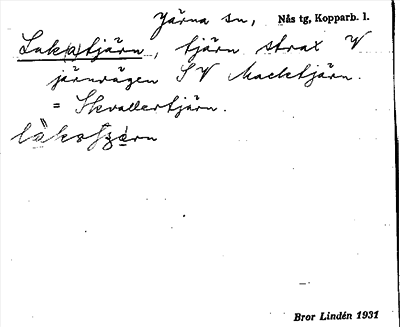 Järna sn, Nås tg, Kopparb. l.
Luk(a)tjärn, tjärn strax V
järnvägen SV Macktjärn.
= Skvallertjärn.
Bror Lindén 1931